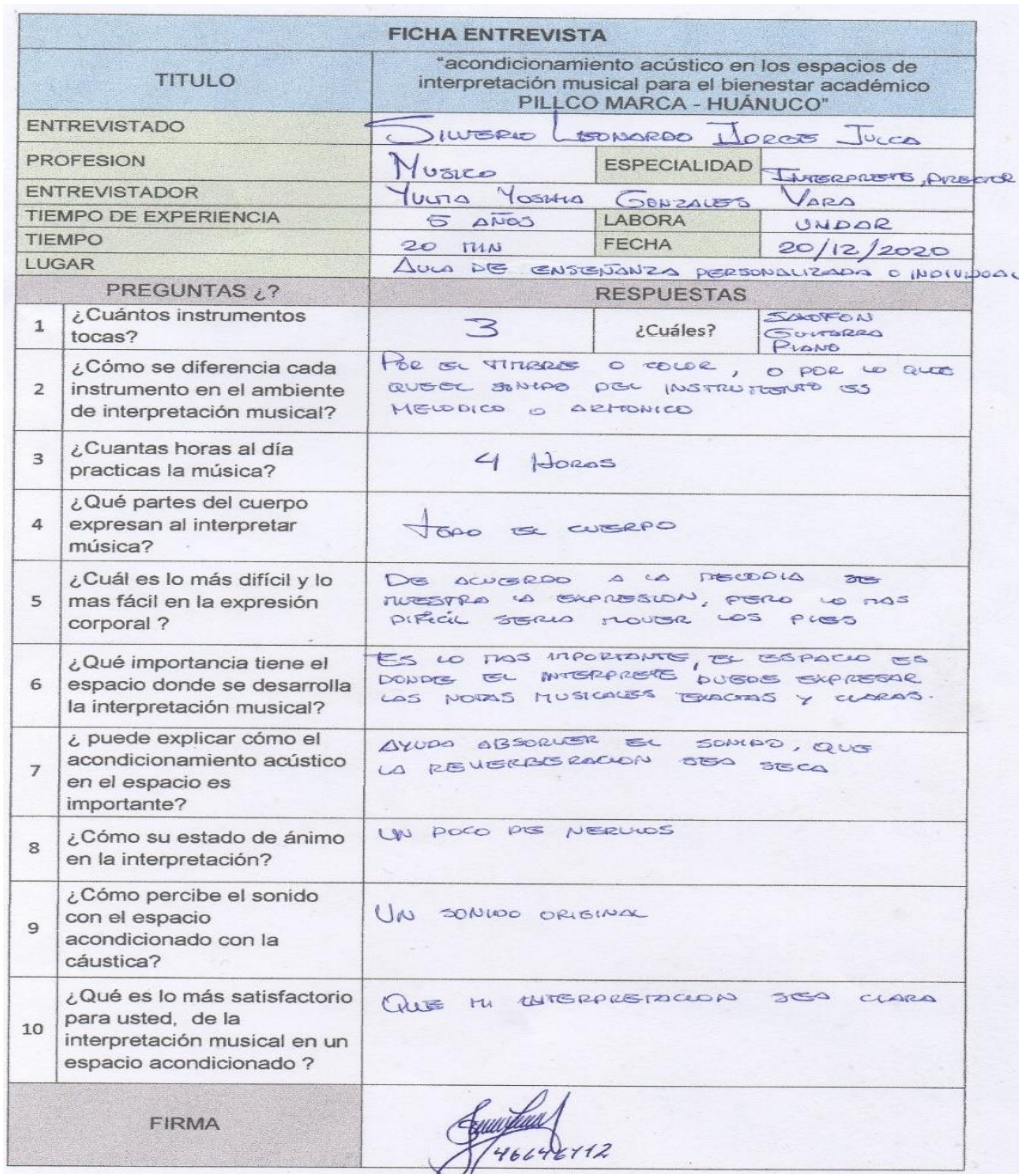 FICHA ENTREVISTA
TITULO
"acondicionamiento acústico en los espacios de
interpretación musical para el bienestar académico
PILLCO MARCA - HUÁNUCO"
ENTREVISTADO SILVERIO LEONARDO JORGE JULCA
PROFESION MUSICO ESPECIALIDAD INTERPRETE, DIRECTOR
ENTREVISTADOR YULTA GONZALES VARA
TIEMPO DE EXPERIENCIA 5 AÑOS LABORA UNDAR
TIEMPO 20 MIN FECHA 20/12/2020
LUGAR AULA DE ENSEÑANZA PERSONALIZADA O INDIVIDUAL
PREGUNTAS ¿? RESPUESTAS
1 ¿Cuántos instrumentos
tocas?
3 ¿Cuáles?
SAXOFON
GUITARRA
PIANO
2 ¿Cómo se diferencia cada
instrumento en el ambiente
de interpretación musical?
POR EL TIMBRE O COLOR, O POR LO QUE
QUE EL SONIDO DEL INSTRUMENTO ES
MELODICO O ARMONICO
3 ¿Cuantas horas al día
practicas la música?
4 HORAS
4 ¿Qué partes del cuerpo
expresan al interpretar
música?
TODO EL CUERPO
5 ¿Cuál es lo más difícil y lo
mas fácil en la expresión
corporal ?
DE ACUERDO A LA MELODIA SE
MUESTRA LA EXPRESION, PERO LO MAS
DIFICIL SERIA MOVER LOS PIES
6 ¿Qué importancia tiene el
espacio donde se desarrolla
la interpretación musical?
ES LO MAS IMPORTANTE, EL ESPACIO ES
DONDE EL INTERPRETE PUEDE EXPRESAR
LAS NOTAS MUSICALES EXACTAS Y CLARAS.
7 ¿ puede explicar cómo el
acondicionamiento acústico
en el espacio es
importante?
AYUDA ABSORVER EL SONIDO, QUE
LA REVERBERACION SEA SECA
8 ¿Cómo su estado de ánimo
en la interpretación?
UN POCO DE NERVIOS
9 ¿Cómo percibe el sonido
con el espacio
acondicionado con la
cáustica?
UN SONIDO ORIGINAL
10 ¿Qué es lo más satisfactorio
para usted, de la
interpretación musical en un
espacio acondicionado ?
QUE MI INTERPRETACION SEA CLARA
FIRMA